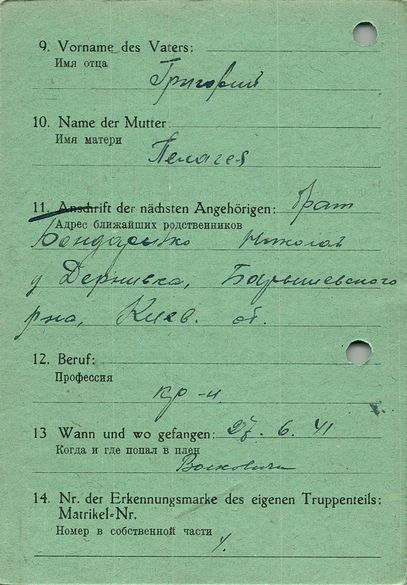 9. Vorname des Vaters:
Имя отца
Григорий
10. Name der Mutter:
Имя матери
Пелагея
11. Anschrift der nächsten Angehörigen: брат
Адрес ближайших родственников
Бондаренко Николай
д Дернивка, Барышевского
р-на, Киев. об.
12. Beruf:
Профессия
кр-н
13 Wann und wo gefangen: 27. 6. 41
Когда и где попал в плен
Волковичи
14. Nr. der Erkennungsmarke des eigenen Truppenteils:
Matrikel-Nr.
Номер в собственной части